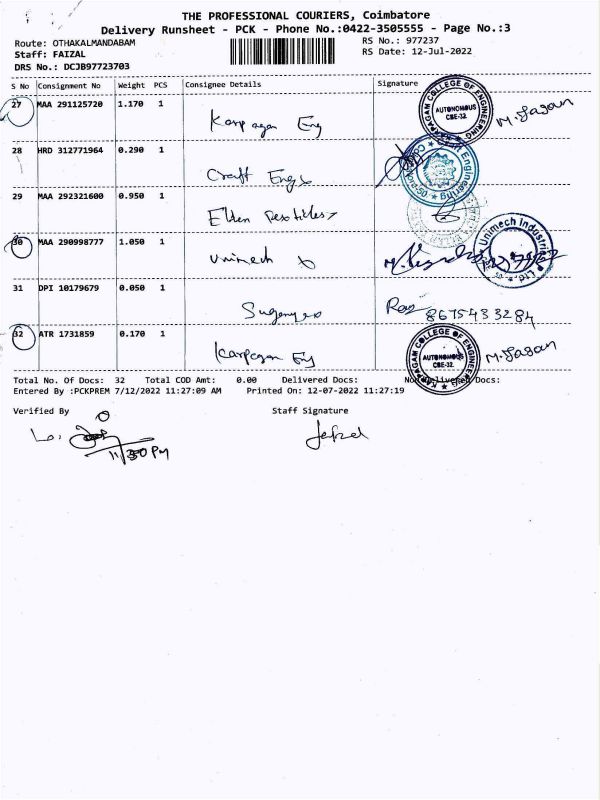 THE PROFESSIONAL COURIERS, Coimbatore
Delivery Runsheet - PCK - Phone No.:0422-3505555 - Page No.:3
Route: OTHAKALMANDABAM
RS No.: 977237
Staff: FAIZAL
RS Date: 12-Jul-2022
DRS No.: DCJB97723703
S No Consignment No Weight PCS Consignee Details Signature
27 MAA 291125720 1.170 1 Karpagam Eng M. Jagan
KARPAGAM COLLEGE OF ENGINEERING
AUTONOMOUS
CBE-32.
28 HRD 312771964 0.290 1 Craft Engg
29 MAA 292321600 0.950 1 Elden
30 MAA 290998777 1.050 1 Unimech
Unimech Industries P Ltd.
31 DPI 10179679 0.050 1
8675433284
32 ATR 1731859 0.170 1 Karpagam Eng M. Jagan
KARPAGAM COLLEGE OF ENGINEERING
AUTONOMOUS
CBE-32.
Total No. Of Docs: 32 Total COD Amt: 0.00 Delivered Docs: Non Delivered Docs:
Entered By :PCKPREM 7/12/2022 11:27:09 AM Printed On: 12-07-2022 11:27:19
Verified By Staff Signature
11/30 PM